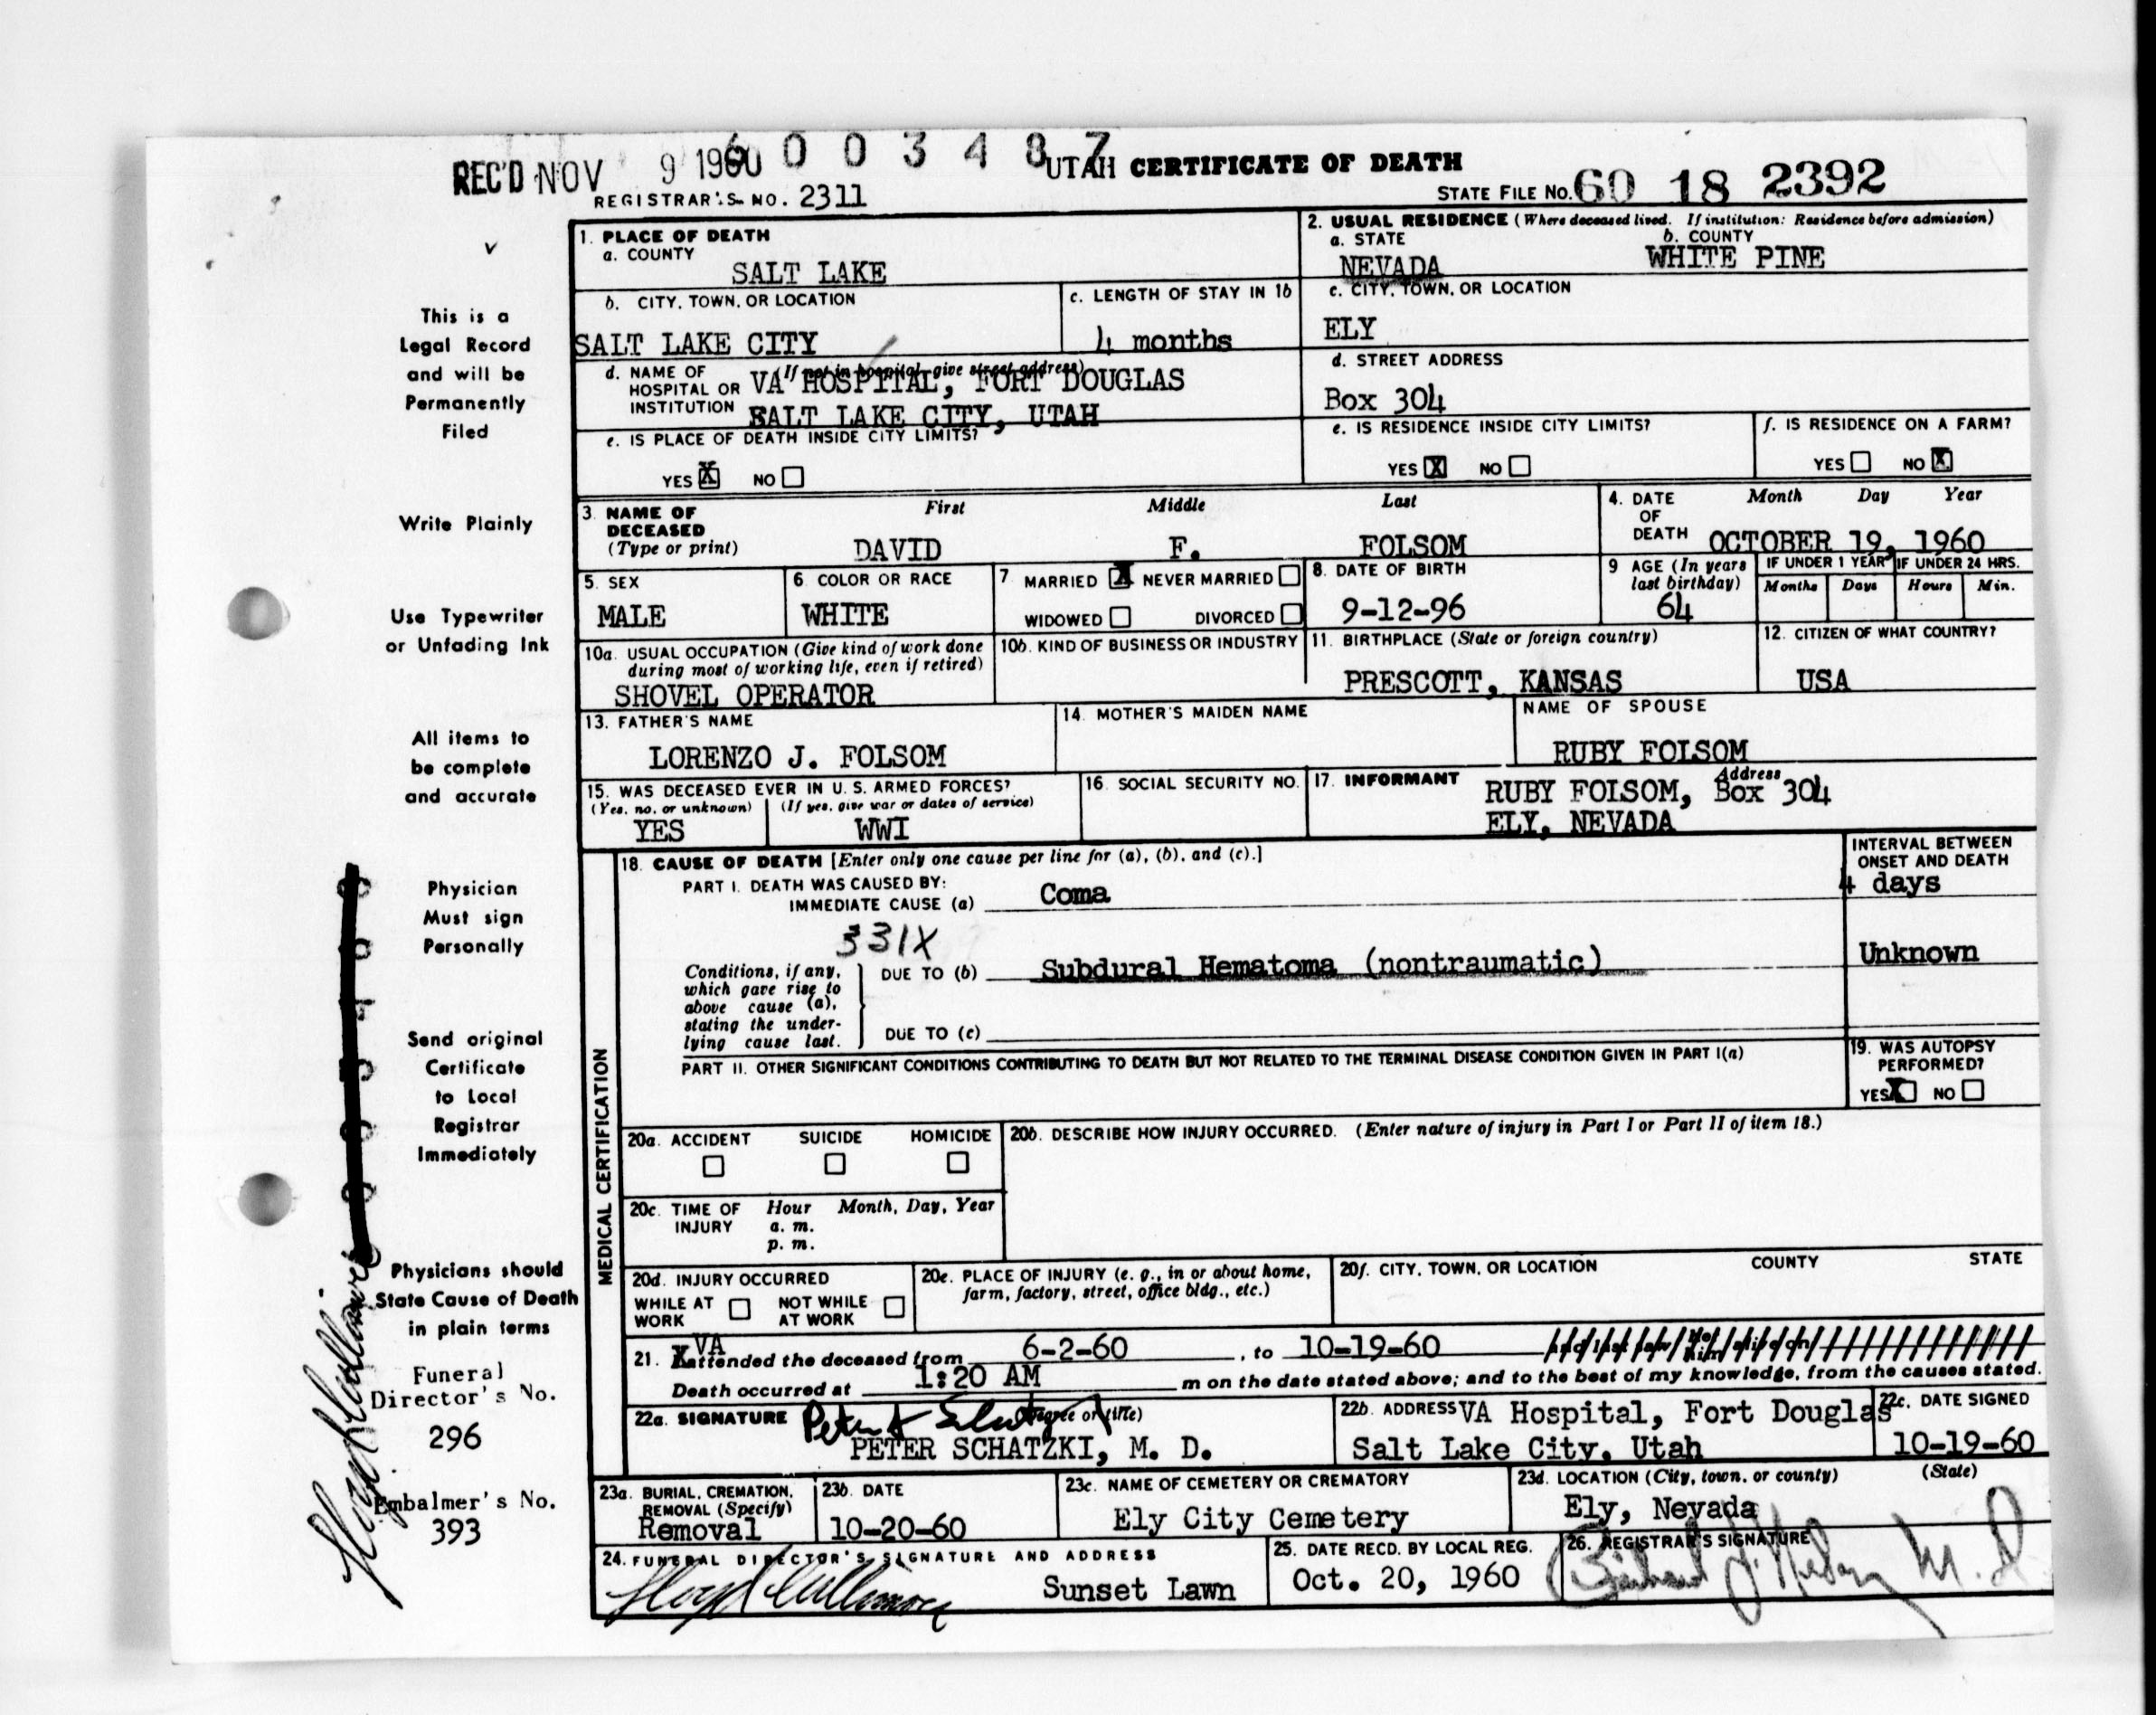 REC'D NOV 9 1960
6 0 0 3 4 8 7
UTAH CERTIFICATE OF DEATH
REGISTRAR'S NO. 2311
STATE FILE NO. 60 18 2392
1. PLACE OF DEATH
a. COUNTY
SALT LAKE
2. USUAL RESIDENCE (Where deceased lived. If institution: Residence before admission)
a. STATE
NEVADA
b. COUNTY
WHITE PINE
b. CITY, TOWN, OR LOCATION
SALT LAKE CITY
c. LENGTH OF STAY IN 1b
4 months
c. CITY, TOWN, OR LOCATION
ELY
d. NAME OF HOSPITAL OR INSTITUTION
(If not in hospital, give street address)
VA HOSPITAL, FORT DOUGLAS
SALT LAKE CITY, UTAH
d. STREET ADDRESS
Box 304
e. IS PLACE OF DEATH INSIDE CITY LIMITS?
YES X NO
e. IS RESIDENCE INSIDE CITY LIMITS?
YES X NO
f. IS RESIDENCE ON A FARM?
YES NO X
3. NAME OF DECEASED
(Type or print)
First Middle Last
DAVID F. FOLSOM
4. DATE OF DEATH
Month Day Year
OCTOBER 19, 1960
5. SEX
MALE
6. COLOR OR RACE
WHITE
7. MARRIED X NEVER MARRIED
WIDOWED DIVORCED
8. DATE OF BIRTH
9-12-96
9 AGE (In years last birthday)
64
IF UNDER 1 YEAR
Months Days
IF UNDER 24 HRS.
Hours Min.
10a. USUAL OCCUPATION (Give kind of work done during most of working life, even if retired)
SHOVEL OPERATOR
10b. KIND OF BUSINESS OR INDUSTRY
11. BIRTHPLACE (State or foreign country)
PRESCOTT, KANSAS
12. CITIZEN OF WHAT COUNTRY?
USA
13. FATHER'S NAME
LORENZO J. FOLSOM
14. MOTHER'S MAIDEN NAME
NAME OF SPOUSE
RUBY FOLSOM
15. WAS DECEASED EVER IN U. S. ARMED FORCES?
(Yes, no, or unknown) (If yes, give war or dates of service)
YES WWI
16. SOCIAL SECURITY NO.
17. INFORMANT Address
RUBY FOLSOM, Box 304
ELY, NEVADA
MEDICAL CERTIFICATION
18. CAUSE OF DEATH [Enter only one cause per line for (a), (b), and (c).]
INTERVAL BETWEEN ONSET AND DEATH
PART I. DEATH WAS CAUSED BY:
IMMEDIATE CAUSE (a) Coma
4 days
331X
Conditions, if any, which gave rise to above cause (a), stating the underlying cause last.
DUE TO (b) Subdural Hematoma (nontraumatic)
Unknown
DUE TO (c)
PART II. OTHER SIGNIFICANT CONDITIONS CONTRIBUTING TO DEATH BUT NOT RELATED TO THE TERMINAL DISEASE CONDITION GIVEN IN PART I(a)
19. WAS AUTOPSY PERFORMED?
YES X NO
20a. ACCIDENT SUICIDE HOMICIDE
20b. DESCRIBE HOW INJURY OCCURRED. (Enter nature of injury in Part I or Part II of item 18.)
20c. TIME OF INJURY
Hour Month, Day, Year
a. m.
p. m.
20d. INJURY OCCURRED
WHILE AT WORK
NOT WHILE AT WORK
20e. PLACE OF INJURY (e. g., in or about home, farm, factory, street, office bldg., etc.)
20f. CITY, TOWN, OR LOCATION COUNTY STATE
21. VA attended the deceased from 6-2-60, to 10-19-60
Death occurred at 1:20 AM m on the date stated above; and to the best of my knowledge, from the causes stated.
22a. SIGNATURE
(Degree or title)
PETER SCHATZKI, M. D.
22b. ADDRESS VA Hospital, Fort Douglas
Salt Lake City, Utah
22c. DATE SIGNED
10-19-60
23a. BURIAL, CREMATION, REMOVAL (Specify)
Removal
23b. DATE
10-20-60
23c. NAME OF CEMETERY OR CREMATORY
Ely City Cemetery
23d. LOCATION (City, town, or county) (State)
Ely, Nevada
24. FUNERAL DIRECTOR'S SIGNATURE AND ADDRESS
Sunset Lawn
25. DATE RECD. BY LOCAL REG.
Oct. 20, 1960
26. REGISTRAR'S SIGNATURE
This is a
Legal Record
and will be
Permanently
Filed
Write Plainly
Use Typewriter
or Unfading Ink
All items to
be complete
and accurate
Physician
Must sign
Personally
Send original
Certificate
to Local
Registrar
Immediately
Physicians should
State Cause of Death
in plain terms
Funeral
Director's No.
296
Embalmer's No.
393